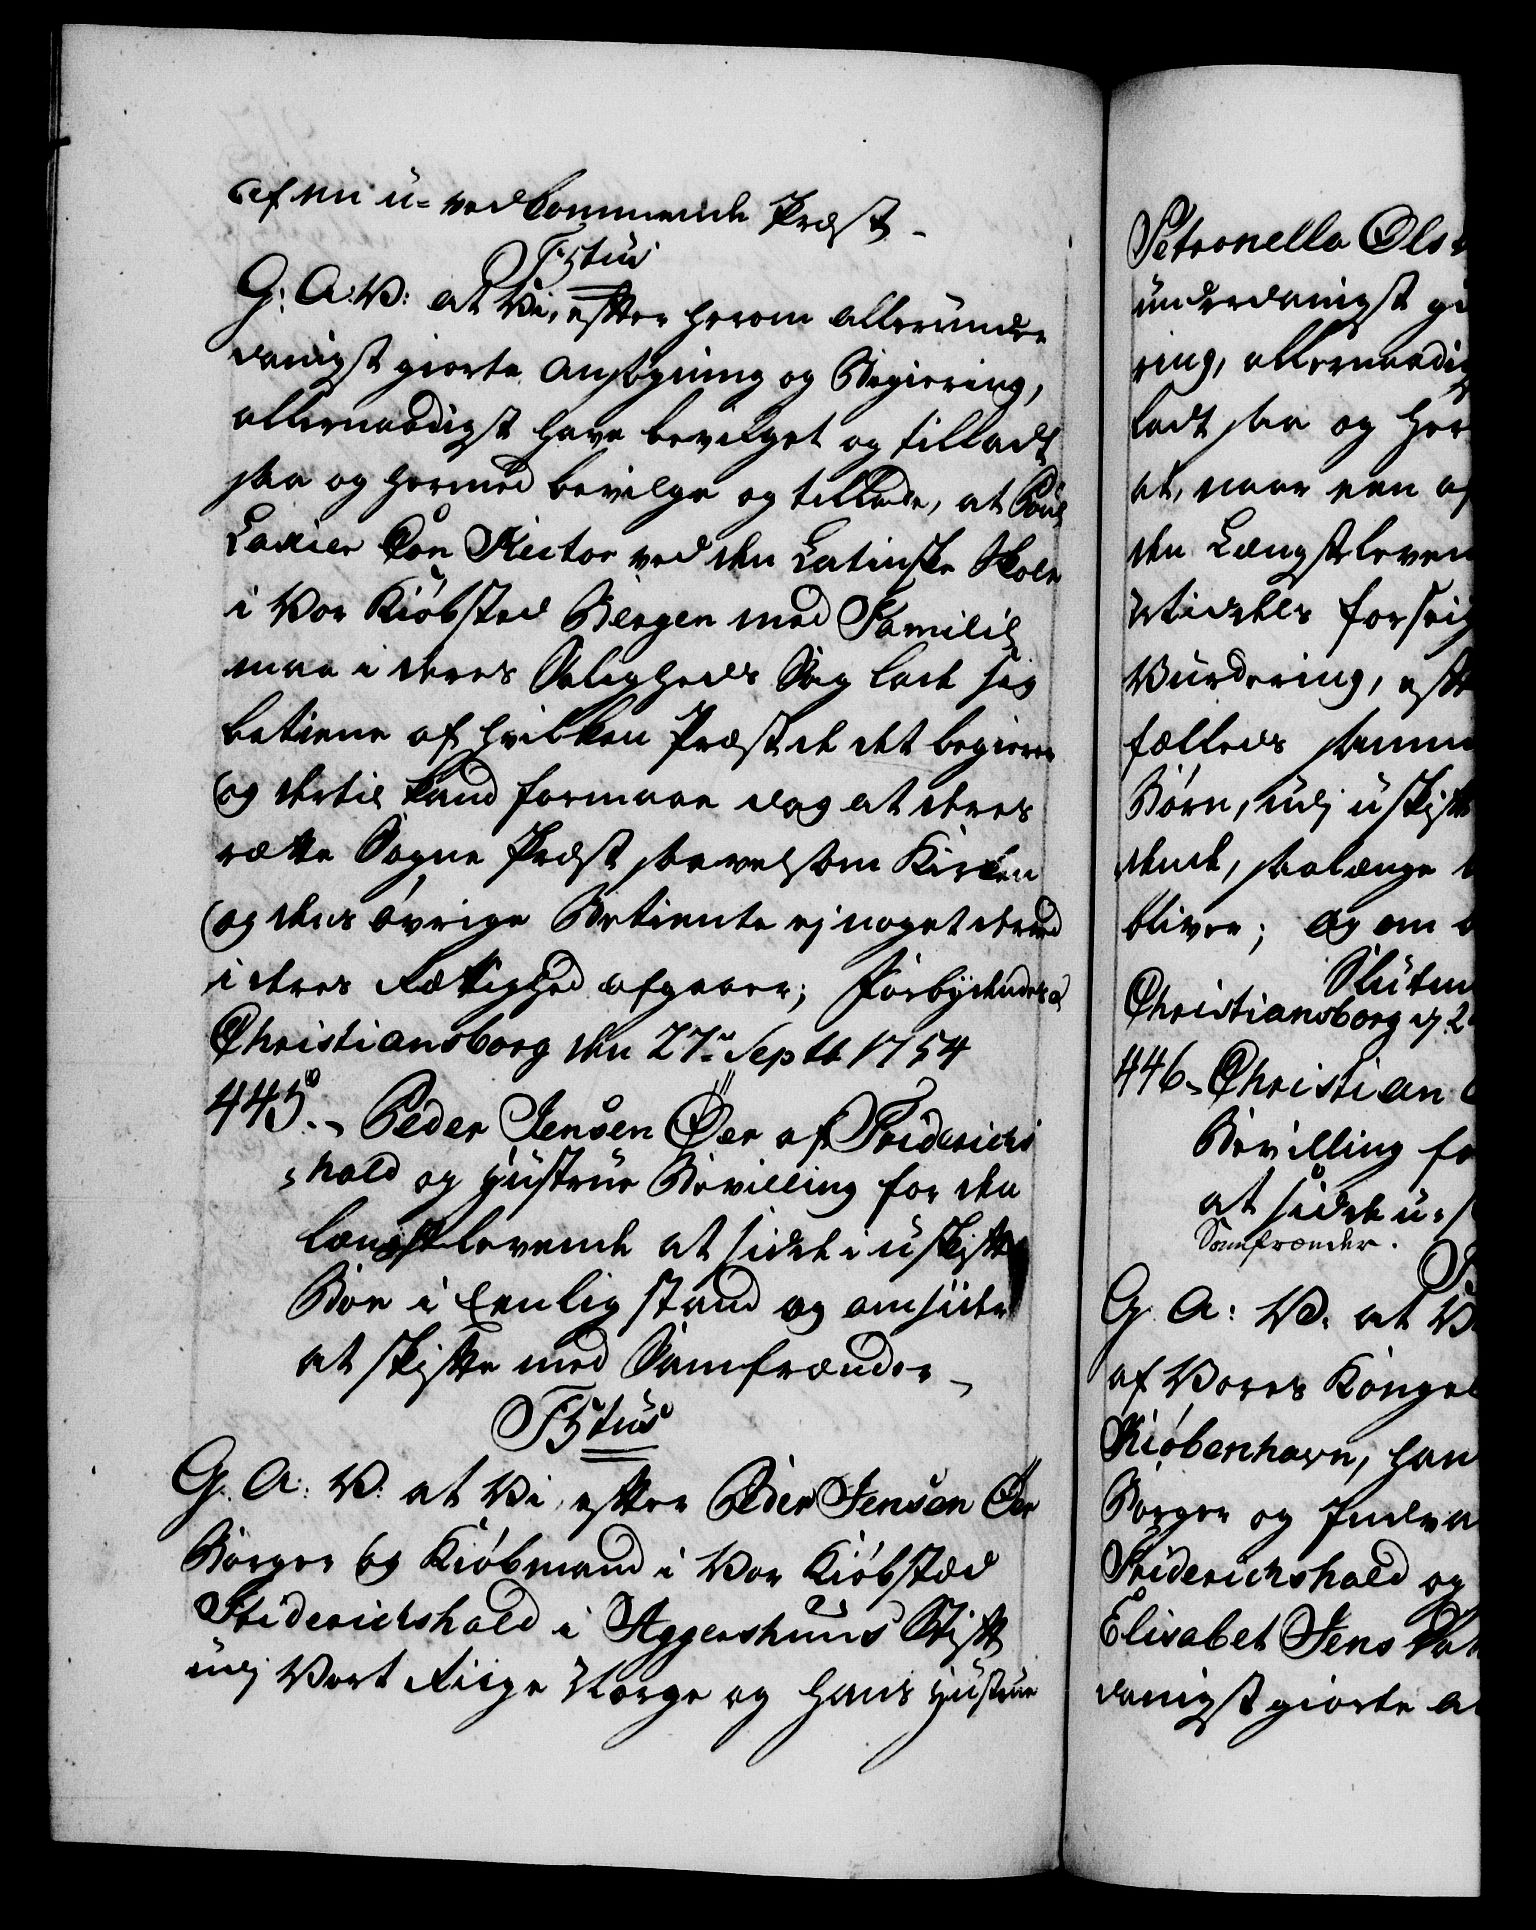 af en u-vedkommende Præst.
F5tus
G: A: V: at Vi, efter herom allerunder
danigst giorte Ansøgning og Begiering,
allernaadigst have bevilget og tilladt
saa og hermed bevilge og tillade, at Poul
Con Rector ved den Latinske Skole
i Vor Kiøbsted Bergen med Familie
maa i deres Saligheds Sag lade sig
betiene af hvilken Præst de det begierer
og dertil kand formaae dog at deres
rette Sogne Præst saavelsom Kirken
og dens øvrige Betiente ej noget derved
i deres Rættighed afgaaer; Forbydendes
Christiansborg den 27. Septb 1754
445. Peder Jensen Öer af Friderichs
hald og Hustrue Bevilling for den
længstlevende at sidde i uskifte
Boe i Eenlig stand og omsider
at skifte med Samfrænder
F5tus
G. A: V: at Vi, efter Peder Jensen Öer
Borger og Kiøbmand i Vor Kiøbsted
Friderichshald i Aggershuus Stift
udj Vort Riige Norge og hans Hustrue
Petronella Ols
underdanigst gi
ring, allernaadig
ladt saa og her
at, naar een af
den Længstleven
Vurdering, eft
fælleds samm
Børn, udj uskift
dende, saalænge
bliver; og om
Sluten
Christiansborg d. 2
446. Christian
Bevilling fo
at sidde u-s
Samfrænder.
G. A: V. at V
af Vores Konge
Kiøbenhavn, han
Borger og Indva
Friderichshald og
Elisabet Jens Dat
danigst giorte A